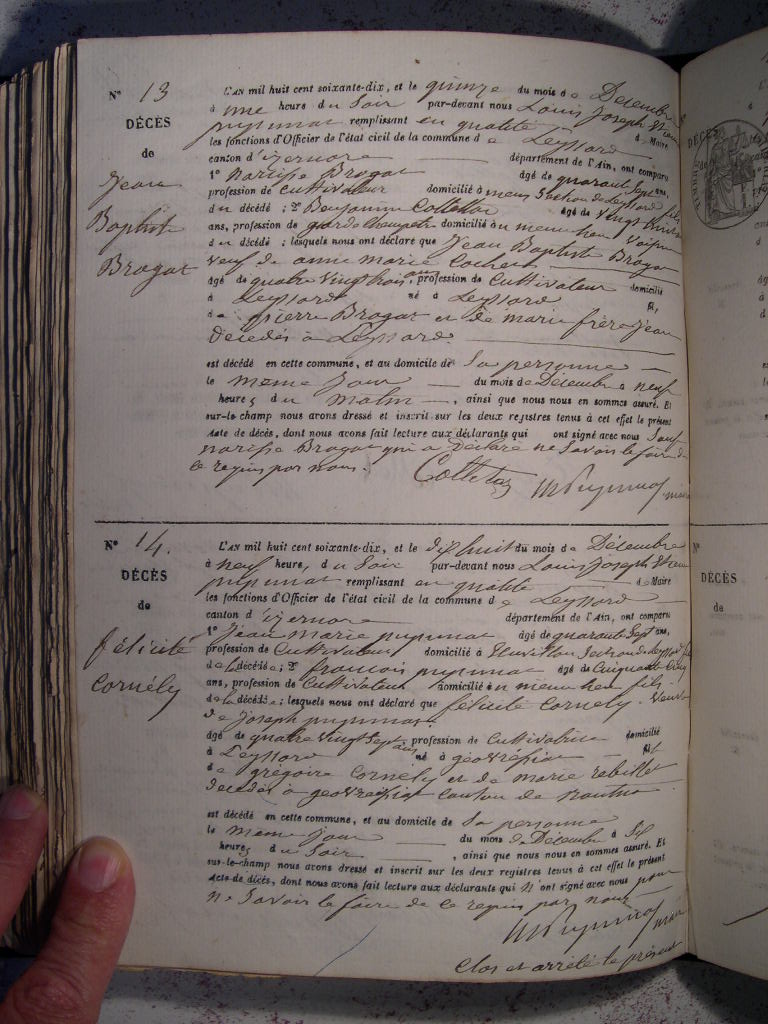 N° 13
DÉCÈS
de
Jean
Baptiste
Brogat
L'AN mil huit cent soixante-dix, et le quinze du mois de Décembre
à une heure du Soir par-devant nous Louis Joseph
remplissant en qualité de Maire
les fonctions d'Officier de l'état civil de la commune de Leyssard
canton d'izernore département de l'Ain, ont comparu
1° Narcisse Brogat âgé de quarant Sept ans,
profession de Cultivateur domicilié à Section de Leyssard fils
du décédé ; 2° Benjamin Colletta âgé de Vingt huit
ans, profession de garde Champetre domicilié en meme lieu Voisin
du décédé ; lesquels nous ont déclaré que Jean Baptiste Brogat
Veuf de anne marie Cochet
âgé de quatre Vingt trois ans, profession de Cultivateur domicilié
à Leyssard né à Leyssard fils
de pierre Brogat et de marie frère Jean
décédés à Leyssard.
est décédé en cette commune, et au domicile de Sa personne
le meme Jour du mois de Décembre à neuf
heures du Matin, ainsi que nous nous en sommes assuré. Et
sur-le-champ nous avons dressé et inscrit sur les deux registres tenus à cet effet le présent
Acte de décès, dont nous avons fait lecture aux déclarants qui ont signé avec nous Sauf
narcisse Brogat qui a déclaré ne Savoir le faire de
ce requis par nous.
N° 14.
DÉCÈS
de
félicité
Cornély
L'AN mil huit cent soixante-dix, et le dix huit du mois de Décembre
à neuf heures du Soir par-devant nous Louis Joseph
remplissant en qualité de Maire
les fonctions d'Officier de l'état civil de la commune de Leyssard
canton d'izernore département de l'Ain, ont comparu
1° Jean Marie âgé de quarant Sept ans,
profession de Cultivateur domicilié à
de la décédée ; 2° francois âgé de Cinquante Cinq
ans, profession de Cultivateur domicilié en meme lieu fils
de la décédée ; lesquels nous ont déclaré que félicité Cornely. Veuve
de Joseph
âgé de quatre Vingt Sept ans profession de Cultivatrice domicilié
à Leyssard né à géovreissiat fil
de grégoire Cornely et de marie rebillet
décédés à canton de Nantua
est décédé en cette commune, et au domicile de Sa personne
le meme jour du mois de Décembre à Six
heures du Soir, ainsi que nous nous en sommes assuré. Et
sur-le-champ nous avons dressé et inscrit sur les deux registres tenus à cet effet le présent
Acte de décès, dont nous avons fait lecture aux déclarants qui n'ont signé avec nous pour
ne Savoir le faire de ce requis par nous
Clos et arrêté le présent
DÉCÈS
N°
DÉCÈS
de